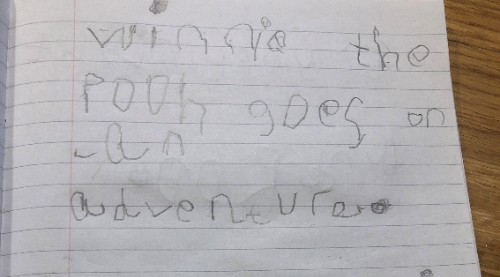 winnie the
Pooh goes on
an
adventure